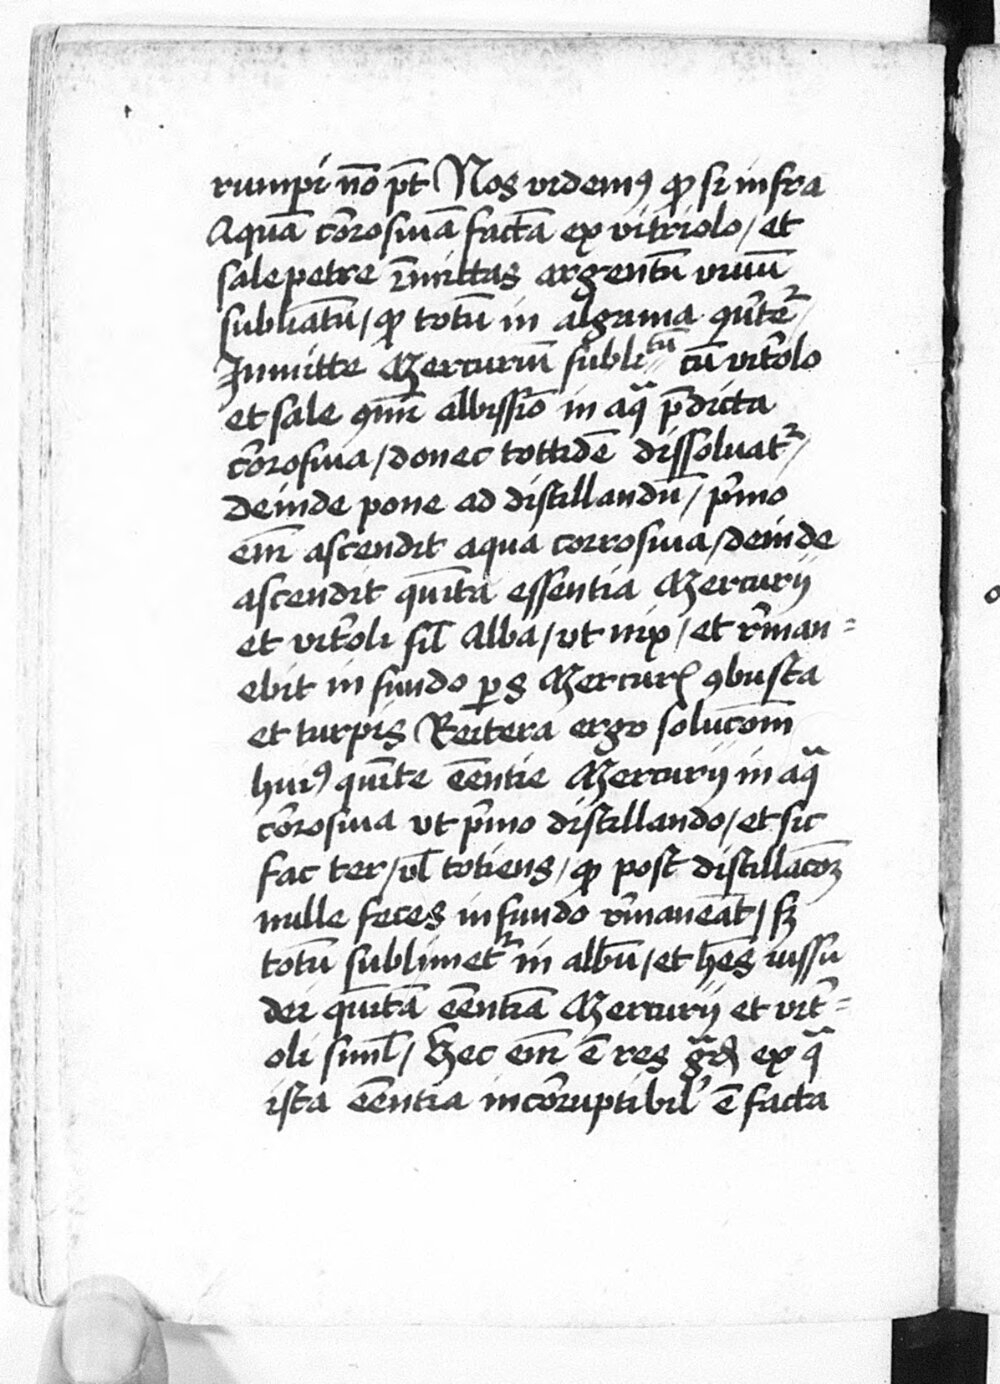 rumpi nō pt̄ Nos videmꝰ ꝙ si infra
Aquā cōrosiuā factā ex vitriolo / et
salepetre īmittas argentū viuū
subliatū / ꝙ totū in algama 
Inmitte Mercuriū subliᵗū cū vit̄olo
et sale albissīo in aqᵃ p̄dicta
cōrosiua / donec tottidē dissoluat᷑ /
deinde pone ad distillandū / p̄mo
em̄ ascendit aqua corrosiua / deinde
ascendit quīta essentia Mercurij
et vit̄oli sil̄ Alba / vt nix / et r̄man =
ebit in fundo ꝑs Mercurꝭ ꝯbusta
et turpis Reitera ergo solucōm̄
huiꝰ quīte eēntie Mercurij in aqᵃ
cōrosiua vt p̄mo distillando / et sic
fac ter / vl̄ totiens / ꝙ post distillacōꝫ
nulle feces in fundo r̄maneāt / sꝫ
totū sublimet᷑ in albū / et hēs iussu
dei quītā eēntiā Mercurij et vit̄ =
oli siml̄ / Hec em̄ ē res ex qᵃ
ista eēntia incōruptibil' ē facta